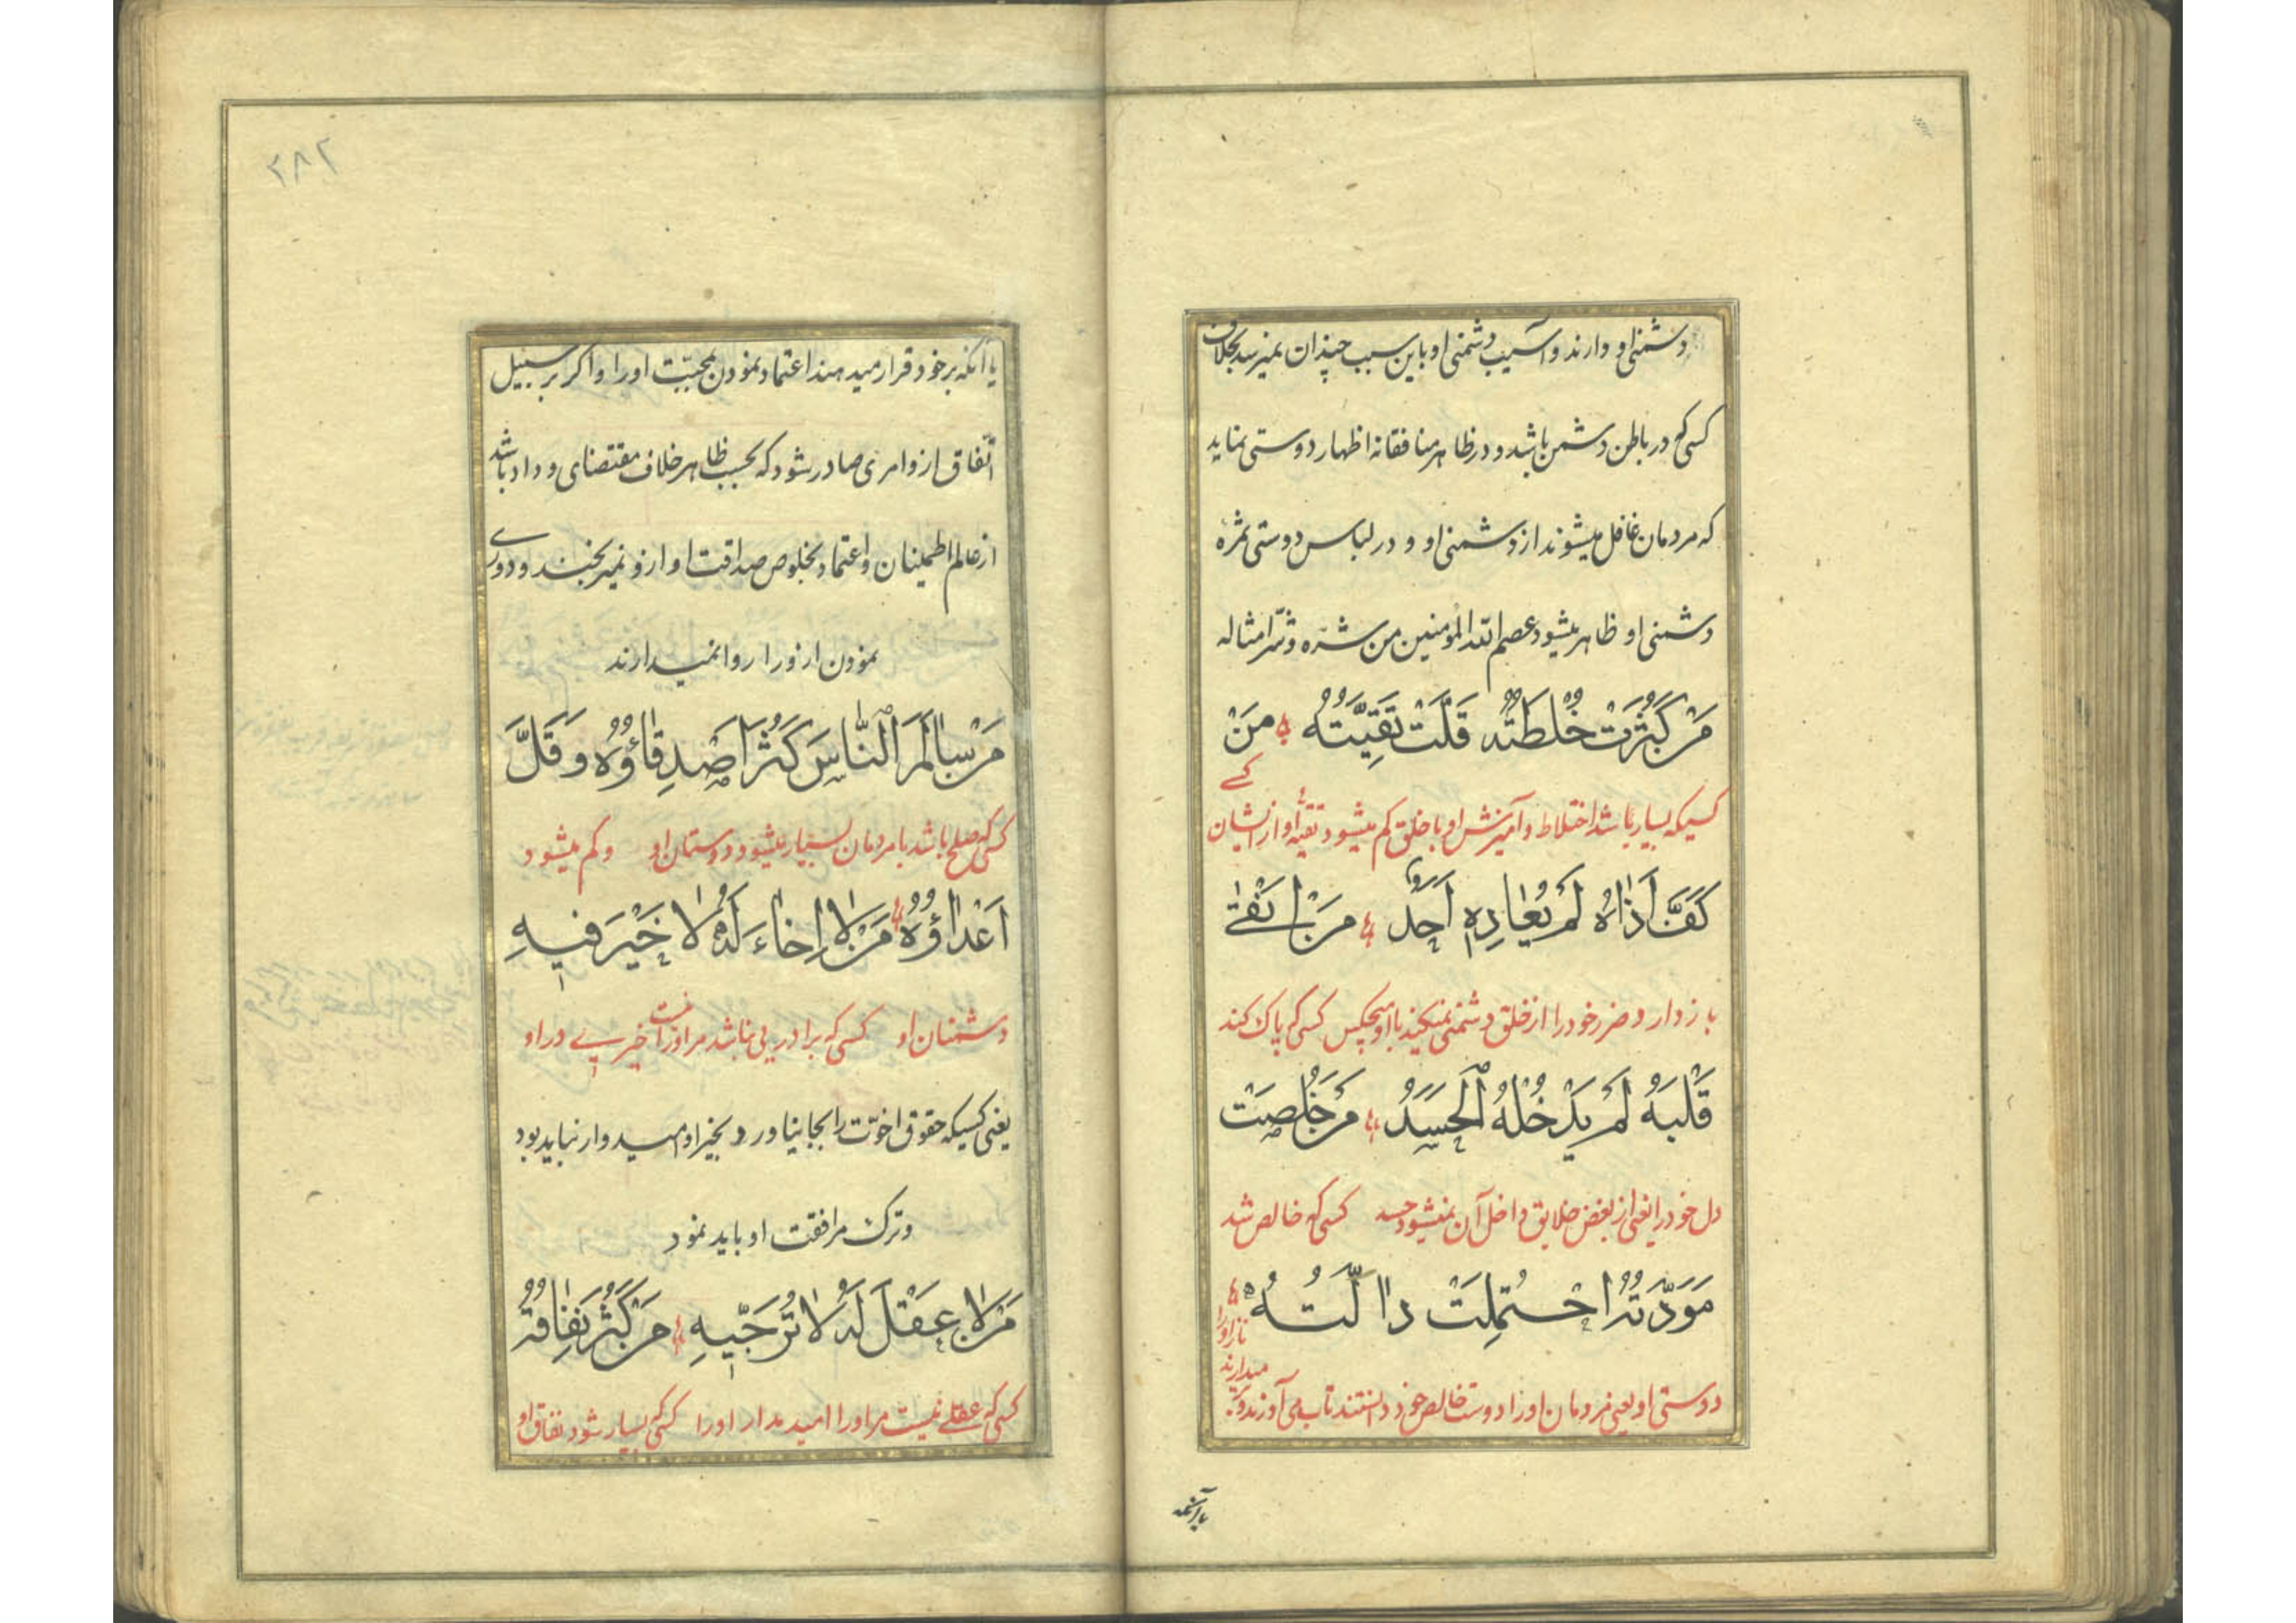 دشمنی او دارند و آسیب دشمنی او باین سبب چندان نمیرسد بخلاف
کسی که در باطن دشمن باشد و در ظاهر منافقانه اظهار دوستی نماید
که مردمان غافل میشوند از دشمنی او و در لباس دوستی ثمرهٔ
دشمنی او ظاهر میشود عصم الله المؤمنین من شره و شر امثاله
مَنْ كَثُرَتْ خُلْطَتُهُ قَلَّتْ تَقِيَّتُهُ مَنْ
کسیکه بسیار باشد اختلاط و آمیزش او با خلق کم میشود تقیّه او از ایشان
کسی که
كَفَّ اَذَاهُ لَمْ يُعَادِهِ اَحَدٌ مَنْ اَنْقٰى
باز دارد ضرر خود را از خلق دشمنی نمیکند با او هیچکس کسی که پاک کند
قَلْبَهُ لَمْ يَدْخُلْهُ الْحَسَدُ مَنْ خَلُصَتْ
دل خود را یعنی از بغض خلایق داخل آن نمیشود حسد کسی که خالص شد
مَوَدَّتُهُ احْتُمِلَتْ دالَّتُهُ
دوستی او یعنی مردمان او را دوست خالص خود دانستند تاب می آورند و بر
میدارند
ناز او را
یا آنکه
۲۸۲
یا آنکه بر خود قرار میدهند اعتماد نمودن بمحبّت او را و اگر بر سبیل
اتّفاق ازو امری صادر شود که بحسب ظاهر خلاف مقتضای وداد باشد
از عالم اطمینان و اعتماد بخلوص صداقت او ازو نمیرنجند و دوری
نمودن ازو را روا نمیدارند
مَنْ سَالَمَ النَّاسَ كَثُرَ اَصْدِقَاؤُهُ وَ قَلَّ
کسی که صلح باشد با مردمان بسیار میشود دوستان او و کم میشود
اَعْدَاؤُهُ مَنْ لَا اِخَاءَ لَهُ لَا خَيْرَ فِيهِ
دشمنان او کسی که برادریی نباشد مر او را نیست خیریے در او
یعنی کسیکه حقوق اخوّت را بجا نیاورد بخیر او امیدوار نباید بود
و ترک مرافقت او باید نمود
مَنْ لَا عَقْلَ لَهُ لَا تُرَجِّيهِ مَنْ كَثُرَ نِفَاقُهُ
کسی که عقلے نیست مر او را امید مدار او را کسی که بسیار شود نفاق او